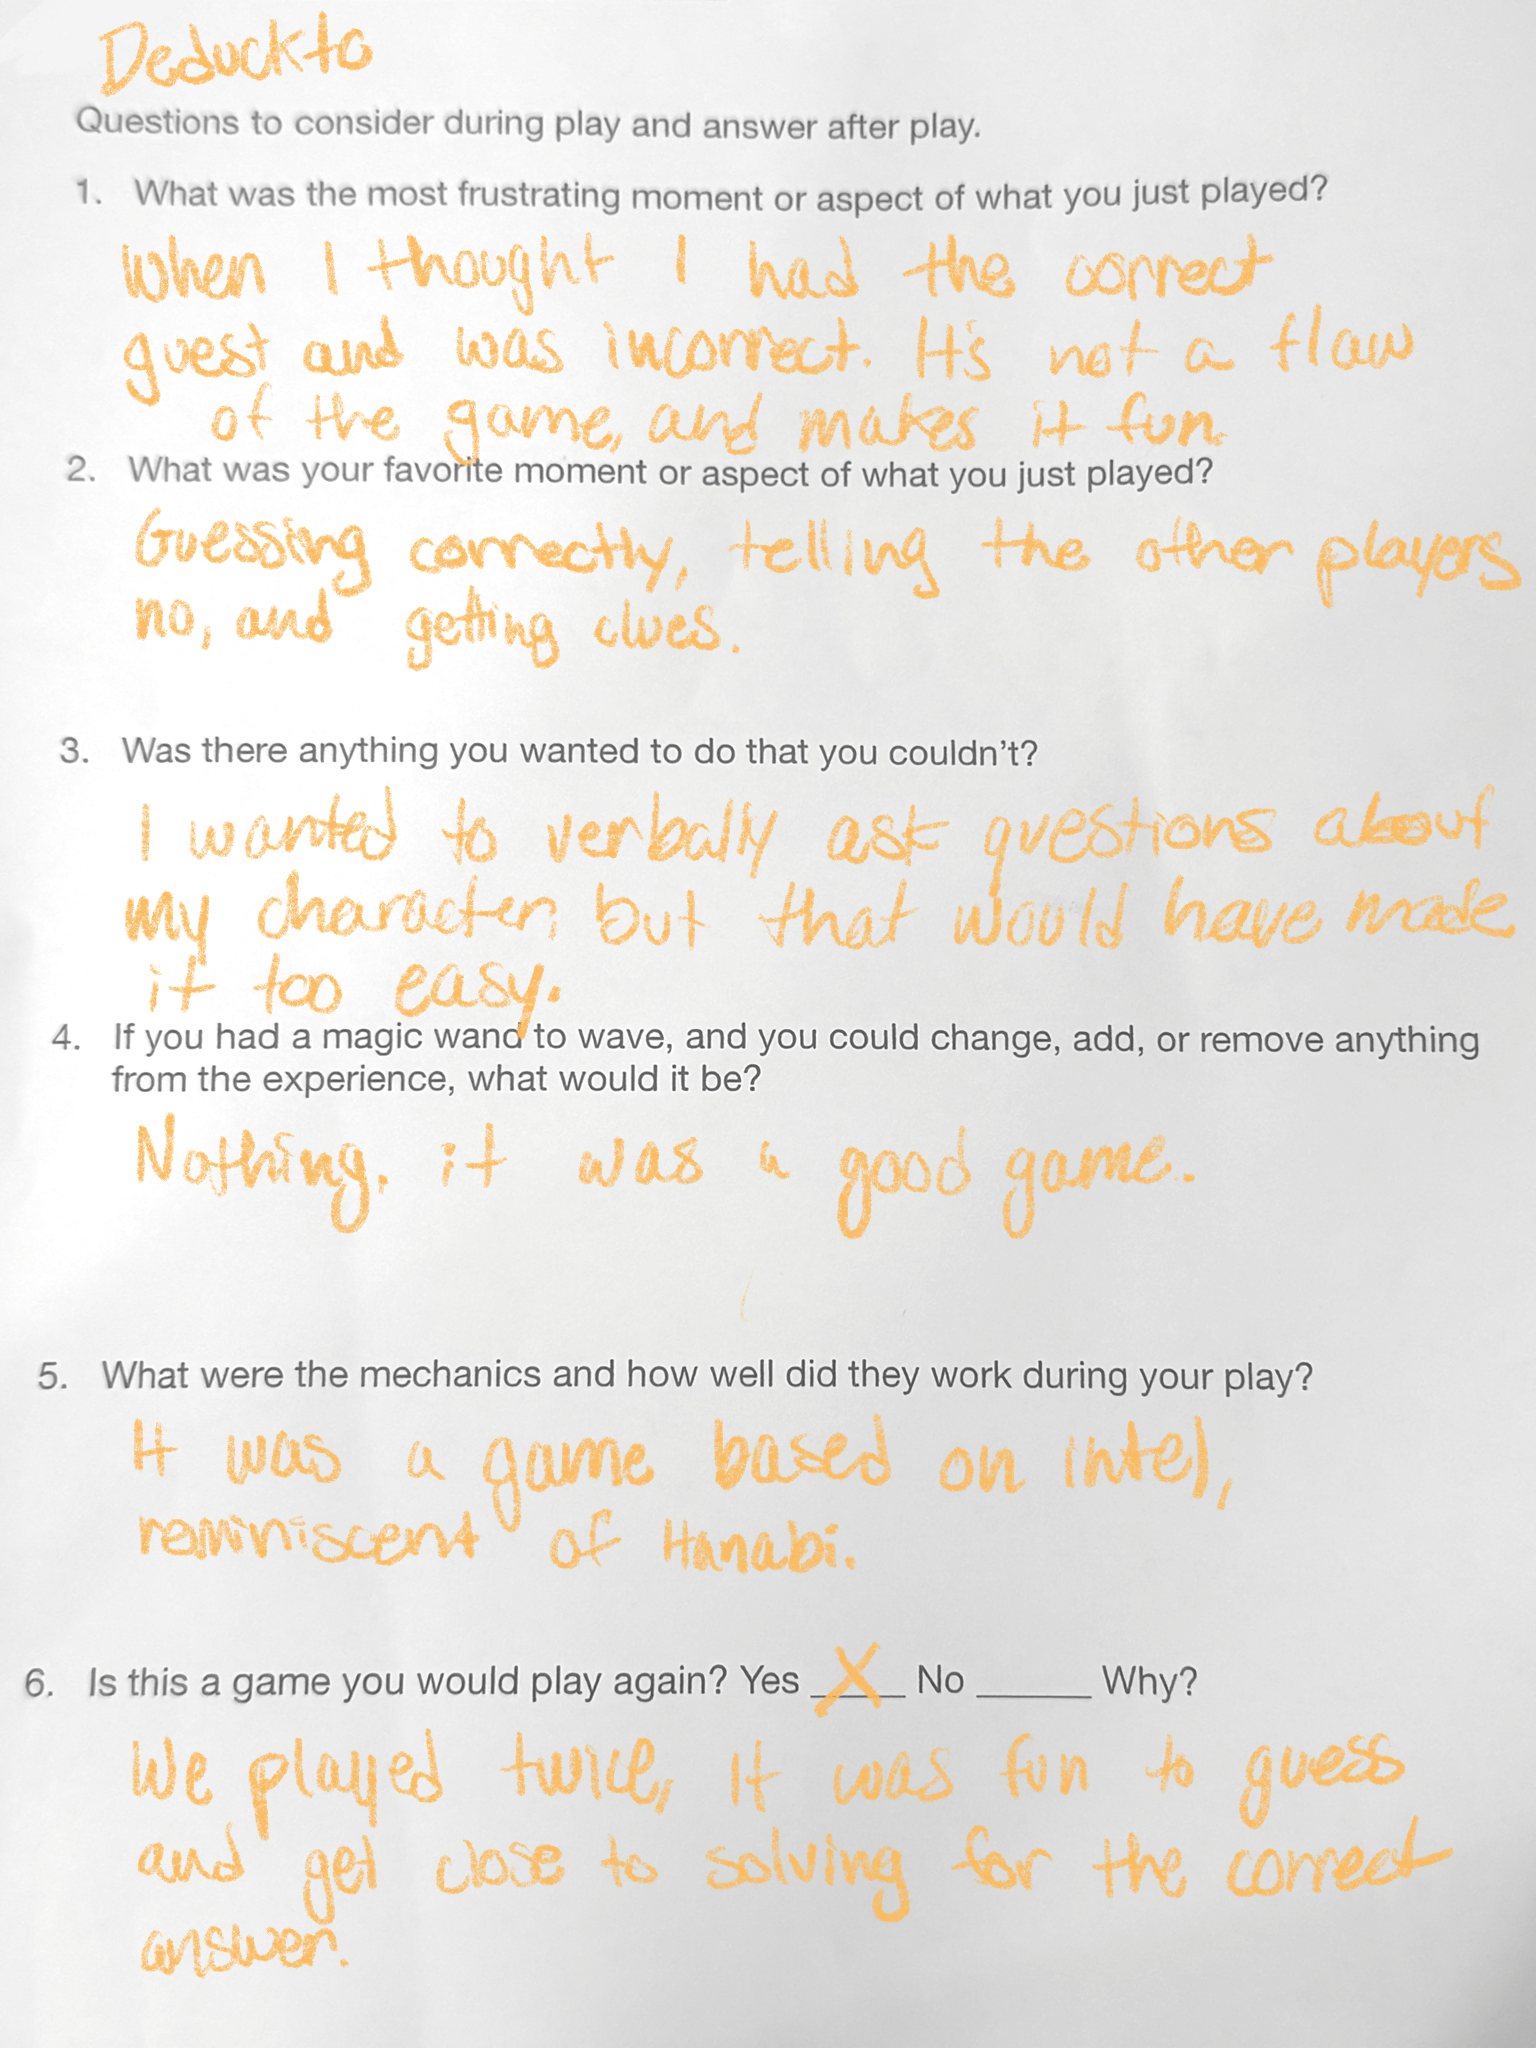 Deduckto
Questions to consider during play and answer after play.
1. What was the most frustrating moment or aspect of what you just played?
When I thought I had the correct
guest and was incorrect. It's not a flaw
of the game, and makes it fun.
2. What was your favorite moment or aspect of what you just played?
Guessing correctly, telling the other players
no, and getting clues.
3. Was there anything you wanted to do that you couldn't?
I wanted to verbally ask questions about
my character, but that would have made
it too easy.
4. If you had a magic wand to wave, and you could change, add, or remove anything
from the experience, what would it be?
Nothing, it was a good game.
5. What were the mechanics and how well did they work during your play?
It was a game based on intel,
reminiscent of Hanabi.
6. Is this a game you would play again? Yes __X__ No _____ Why?
We played twice, It was fun to guess
and get close to solving for the correct
answer.